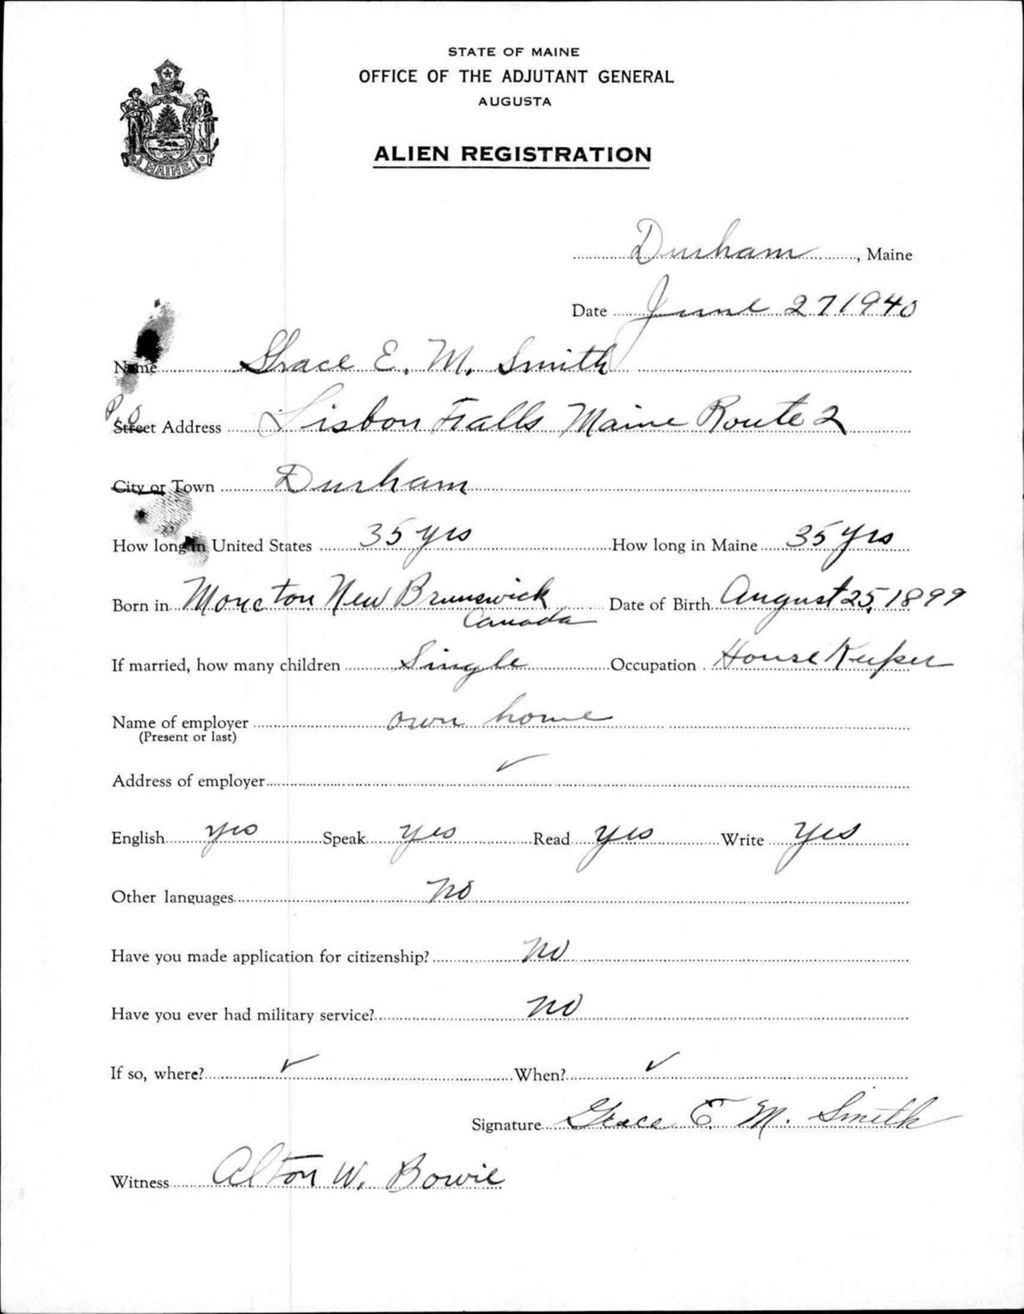 STATE OF MAINE
OFFICE OF THE ADJUTANT GENERAL
AUGUSTA
ALIEN REGISTRATION
MAINE
Durham, Maine
Date June 27 1940
Name Grace E. M. Smith
P O
Street Address Lisbon Falls Maine Route 2
City or Town Durham
How long in United States 35 yrs How long in Maine 35 yrs
Born in Moncton New Brunswick Canada Date of Birth August 25, 1899
If married, how many children Single Occupation House Keeper
Name of employer own home
(Present or last)
Address of employer ✓
English yes Speak yes Read yes Write yes
Other languages no
Have you made application for citizenship? no
Have you ever had military service? no
If so, where? ✓ When? ✓
Signature Grace E. M. Smith
Witness Alton W. Bowie